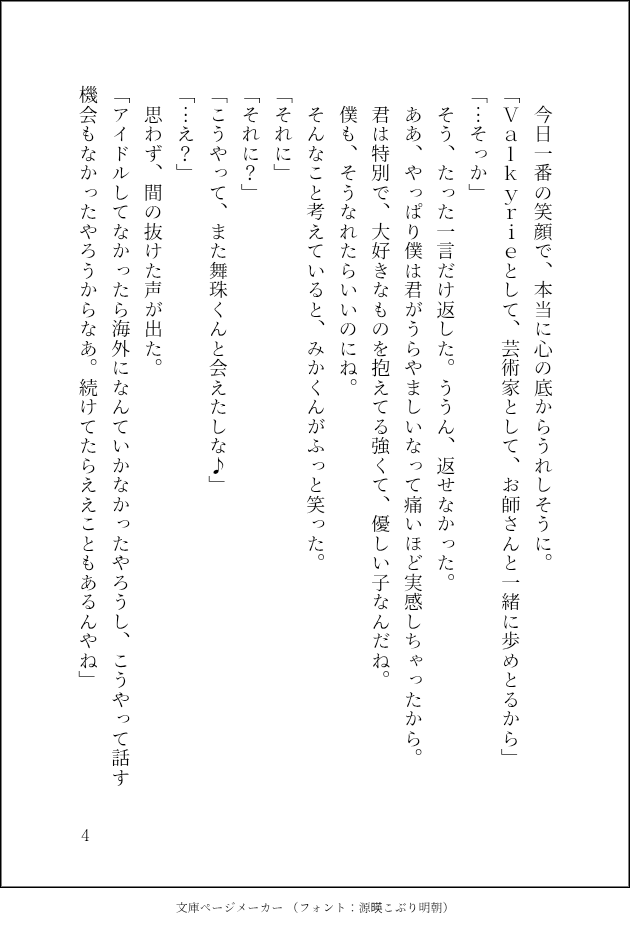 今日一番の笑顔で、本当に心の底からうれしそうに。
「Ｖａｌｋｙｒｉｅとして、芸術家として、お師さんと一緒に歩めとるから」
「…そっか」
そう、たった一言だけ返した。ううん、返せなかった。
ああ、やっぱり僕は君がうらやましいなって痛いほど実感しちゃったから。
君は特別で、大好きなものを抱えてる強くて、優しい子なんだね。
僕も、そうなれたらいいのにね。
そんなこと考えていると、みかくんがふっと笑った。
「それに」
「それに？」
「こうやって、また舞珠くんと会えたしな♪」
「…え？」
思わず、間の抜けた声が出た。
「アイドルしてなかったら海外になんていかなかったやろうし、こうやって話す
機会もなかったやろうからなあ。続けてたらええこともあるんやね」
4
文庫ページメーカー （フォント：源暎こぶり明朝）